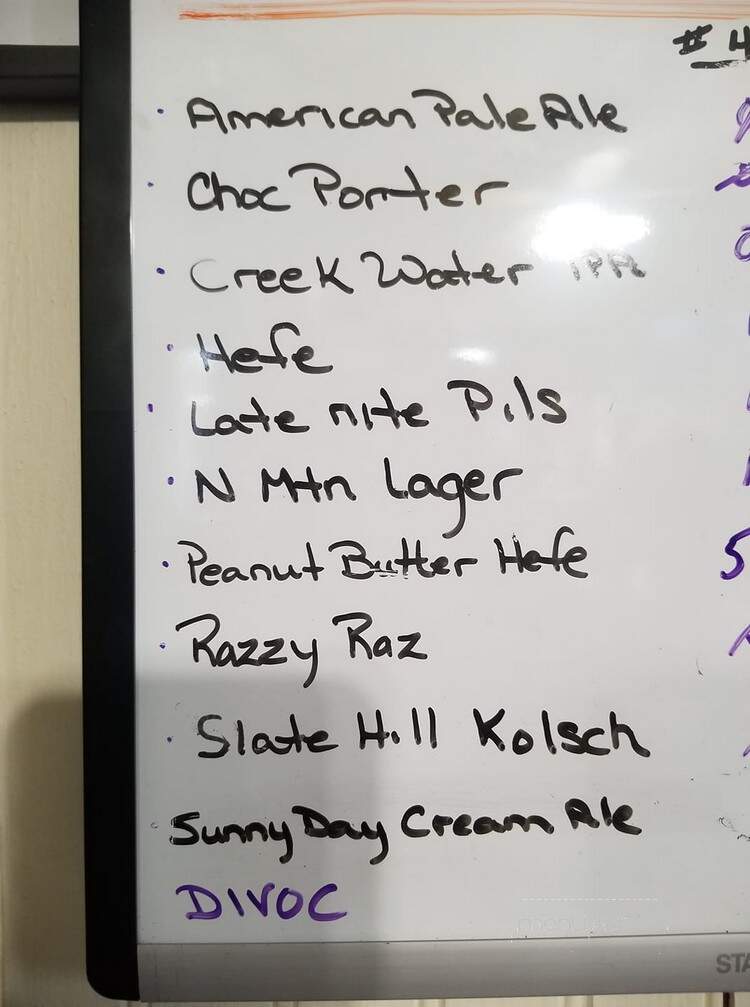 # 4
American Pale Ale
Choc Porter
Creek Water IPA
Hefe
Late nite Pils
N Mtn Lager
Peanut Butter Hefe
5
Razzy Raz
Slate Hill Kolsch
Sunny Day Cream Ale
DIVOC
STA